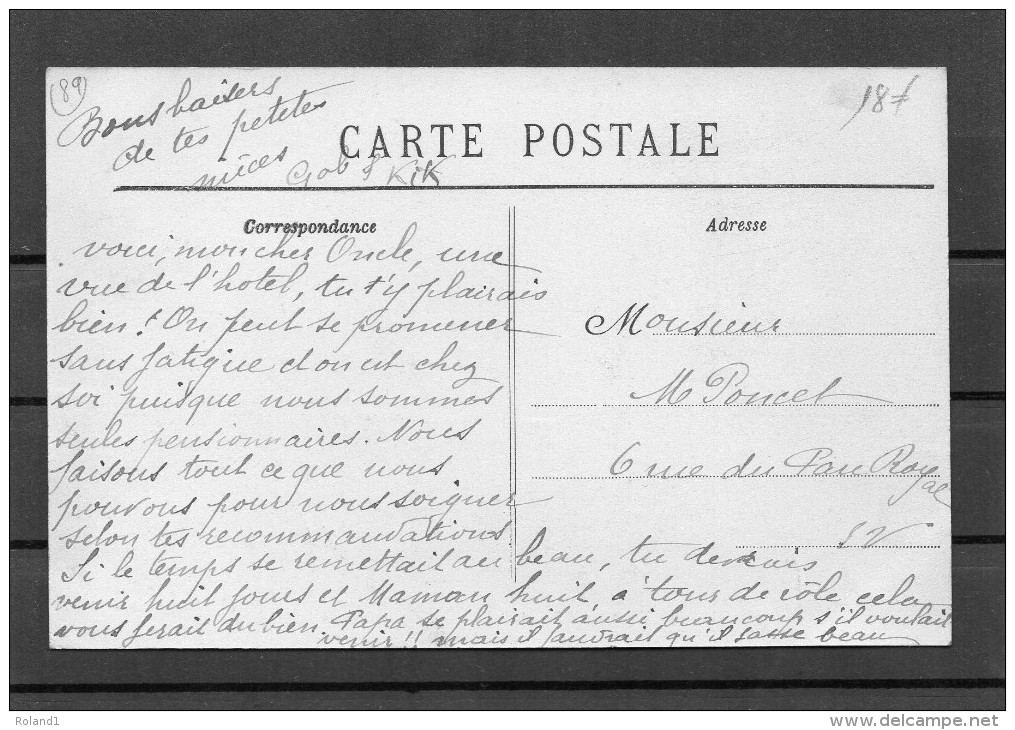 (89)
Bons baisers
de tes petites
nièces Gob & KiK
18f
CARTE POSTALE
Correspondance
Adresse
Voici, mon cher Oncle, une
vue de l'hotel, tu t'y plairais
bien! On peut se promener
sans fatigue et on est chez
soi puisque nous sommes
seules pensionnaires. Nous
faisons tout ce que nous
pouvons pour nous soigner
selon tes recommandations.
Si le temps se remettait au beau, tu devrais
venir huit jours et Maman huit à tour de rôle cela
vous ferait du bien Papa se plairait aussi beaucoup s'il voulait
venir!! mais il faudrait qu'il fasse beau
Monsieur
M Poncet
6 rue du Parc Royal
EV
Roland1
www.delcampe.net